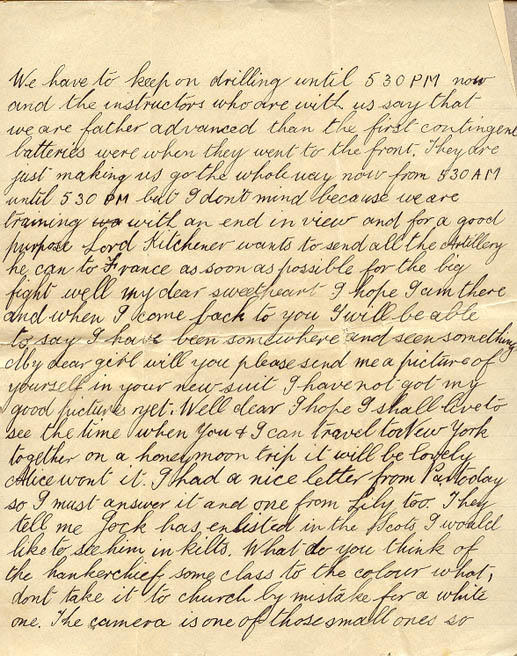 We have to keep on drilling until 5 30 PM now
and the instructors who are with us say that
we are father advanced than the first contingent
batteries were when they went to the front. They are
just making us go the whole way now from 5 30 AM
until 5 30 PM but I don't mind because we are
training with an end in view and for a good
purpose Lord Kitchener wants to send all the Artillery
he can to France as soon as possible for the big
fight well my dear sweetheart I hope I am there
and when I come back to you I will be able
to say I have been somewhere and seen something
My dear girl will you please send me a picture of
yourself in your new suit I have not got my
good pictures yet. Well dear I hope I shall live to
see the time when You & I can travel to New York
together on a honeymoon trip it will be lovely
Alice wont it. I had a nice letter from Pa today
so I must answer it and one from Lily too. They
tell me Jock has enlisted in the Scots I would
like to see him in kilts. What do you think of
the hankerchief some class to the colour what,
dont take it to church by mistake for a white
one. The camera is one of those small ones so